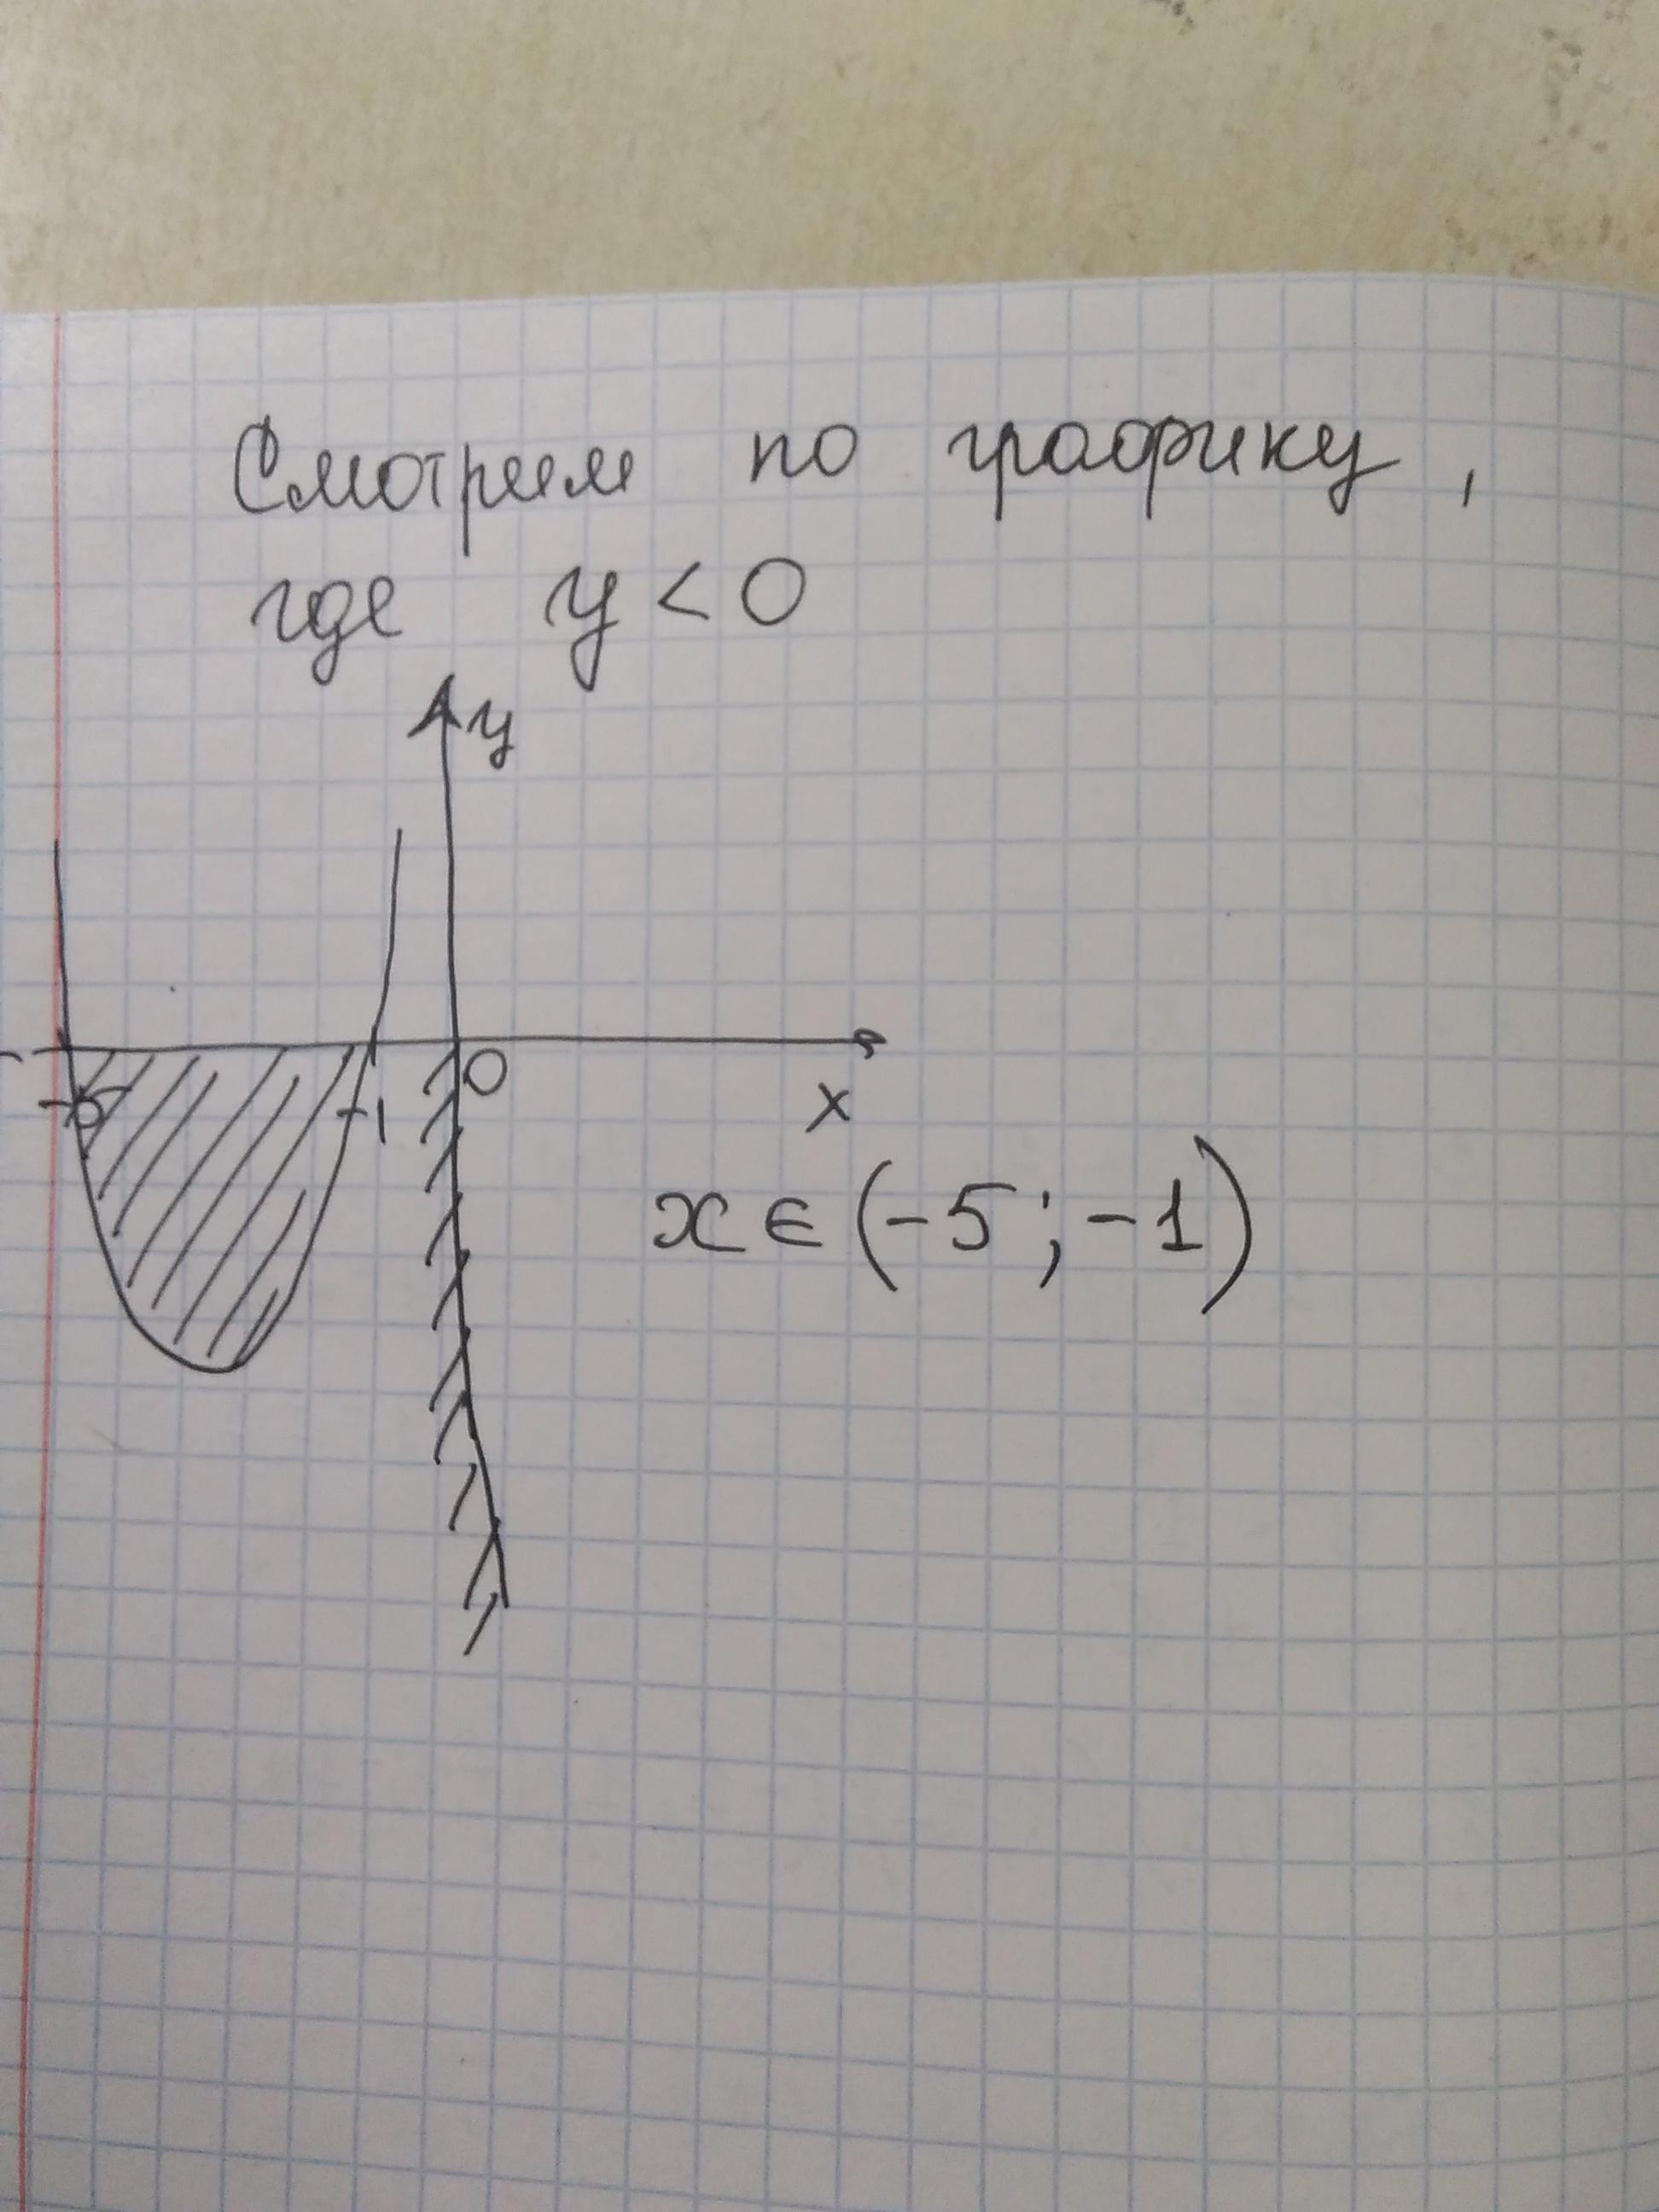 Смотрим по графику,
где y < 0
y
-5 -1 0
x
x ∈ (-5; -1)